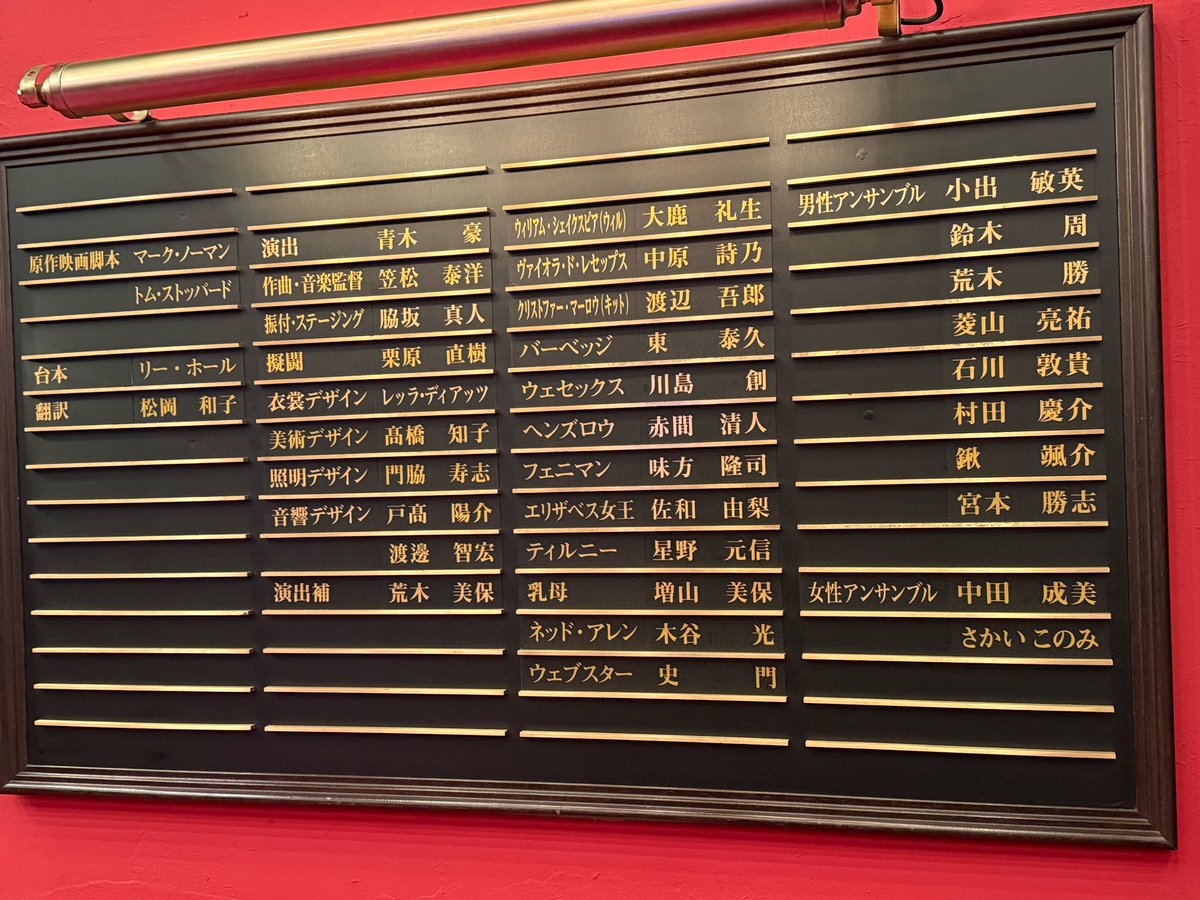 原作映画脚本 マーク・ノーマン
トム・ストッパード
台本 リー・ホール
翻訳 松岡 和子
演出 青木 豪
作曲・音楽監督 笠松 泰洋
振付・ステージング 脇坂 真人
擬闘 栗原 直樹
衣裳デザイン レッラ・ディアッツ
美術デザイン 髙橋 知子
照明デザイン 門脇 寿志
音響デザイン 戸髙 陽介
渡邊 智宏
演出補 荒木 美保
ウィリアム・シェイクスピア（ウィル） 大鹿 礼生
ヴァイオラ・ド・レセップス 中原 詩乃
クリストファー・マーロウ（キット） 渡辺 吾郎
バーベッジ 東 泰久
ウェセックス 川島 創
ヘンズロウ 赤間 清人
フェニマン 味方 隆司
エリザベス女王 佐和 由梨
ティルニー 星野 元信
乳母 増山 美保
ネッド・アレン 木谷 光
ウェブスター 史 門
男性アンサンブル 小出 敏英
鈴木 周
荒木 勝
菱山 亮祐
石川 敦貴
村田 慶介
鍬 颯介
宮本 勝志
女性アンサンブル 中田 成美
さかい このみ